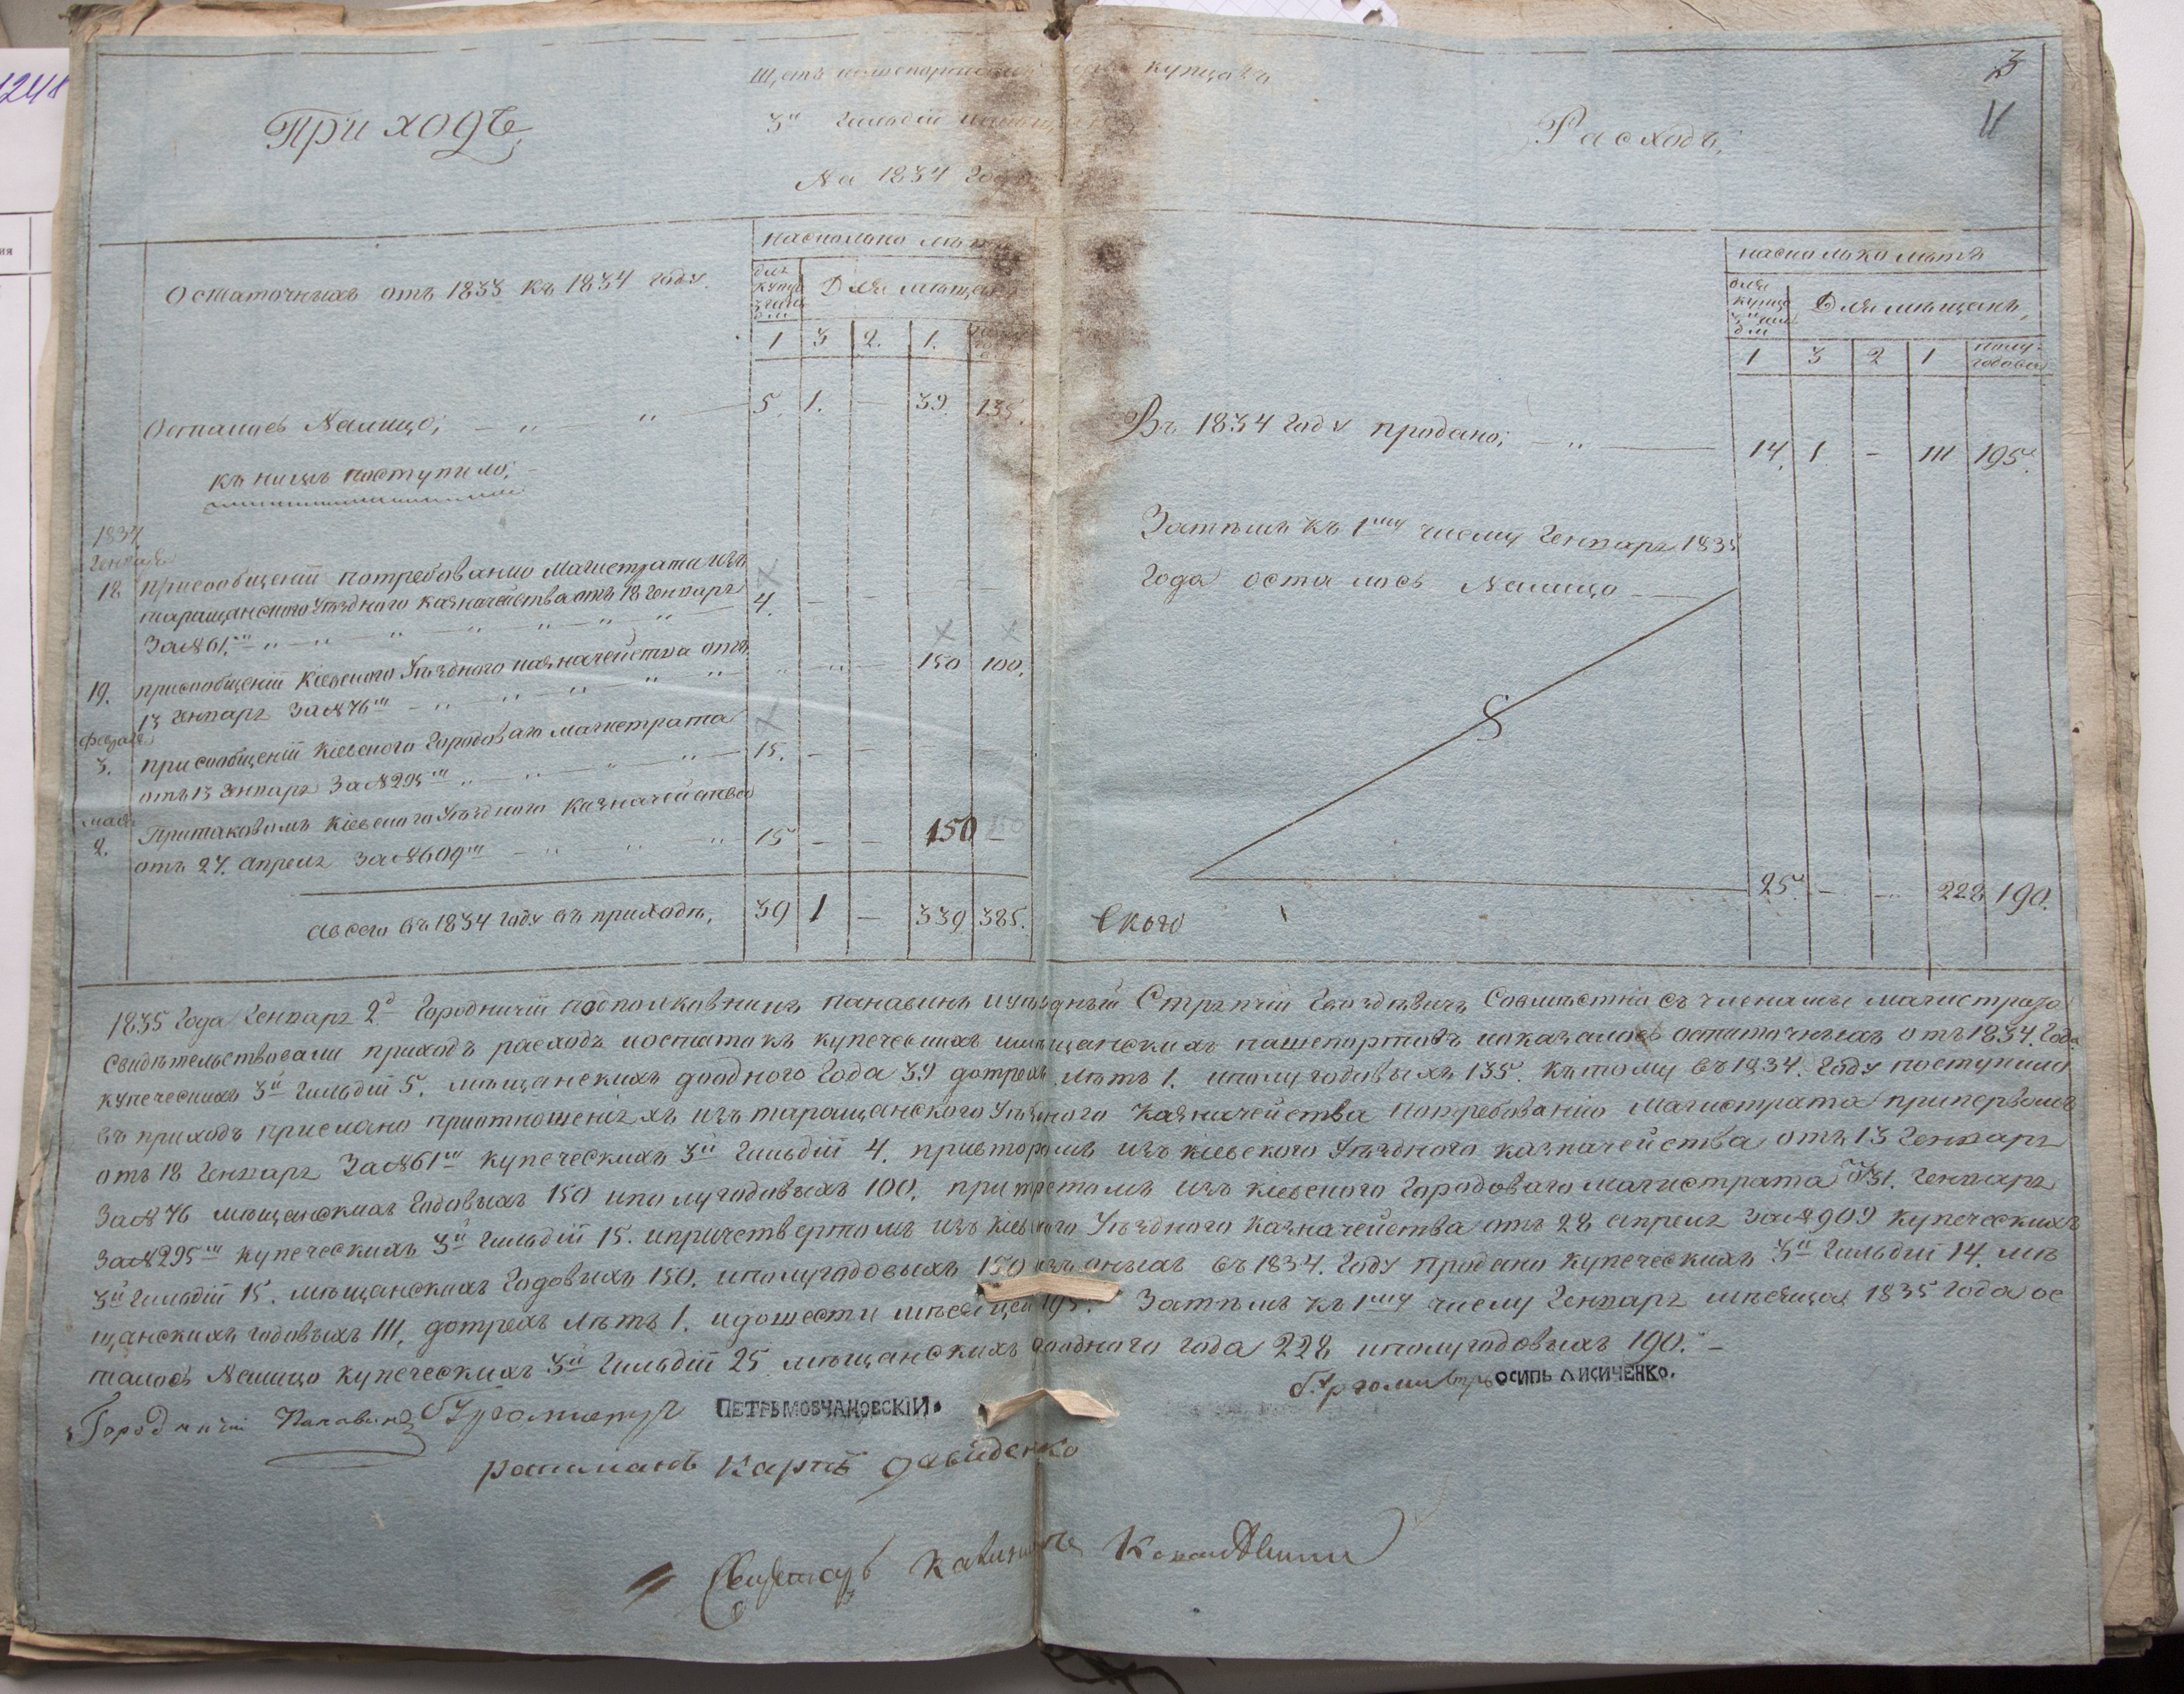 1248
3
11
Щетъ пашепортамъ купцовъ
3й Гильдіи
На 1834 Годъ
Приходъ,
Расходъ,
насколько лѣтъ
для купцо 3 гильдіи
Для мѣщанъ
1 3 2. 1.
Остаточныхъ отъ 1833 къ 1834 году.
Осталось Налицо; 5. 1. — 39. 135.
къ нимъ поступило;
1834
Генваря
18 присообщеніи потребованію Магистрата изъ
таращанского Уѣздного казначейства отъ 18 Генваря
За №61м 4. — —
19. присообщеніи Кіевского Уѣздного казначейства отъ
13 Генваря За №76м 150 100.
Февраля
3. присообщеніи Кіевского Городоваго магистрата
отъ 13 Генваря За №295м 15. — —
мая
2. Притаковомъ Кіевского Уѣздного Казначейства
отъ 27. апреля За №609м 15 — — 150 —
А всего въ 1834 году въ приходѣ, 39 1 — 339 385.
насколько лѣтъ
для купцо 3й гильдіи
Для мѣщанъ,
1 3 2 1 полугодовы
Въ 1834 году продано; 14. 1. — 111 195.
Затѣмъ къ 1му числу Генваря 1835
Года осталось Налицо
25. — — 228 190.
1835 Года Генваря 2д Городничій подполковникъ панавинъ иуѣздный Стряпчій Гвоздѣвичъ Совмѣстно съ членами магистрата
свидѣтельствовали приходъ расходъ иостатокъ купеческихъ имѣщанскихъ пашепортовъ ипоказалось остаточныхъ отъ 1834. Года
купеческихъ 3й Гильдіи 5. мѣщанскихъ доодного Года 39 дотрехъ лѣтъ 1. иполугодовыхъ 135. Къ тому въ 1834. Году поступило
въ приходъ прислано приотношеніяхъ изъ таращанского Уѣздного Казначейства потребованію Магистрата припервомъ
отъ 18 Генваря За №61м купеческихъ 3й Гильдіи 4. привторомъ изъ кіевского Уѣздного казначейства отъ 13 Генваря
За №76 мѣщанскихъ Годовыхъ 150 иполугодовыхъ 100. притретомъ изъ кіевского Городоваго магистрата отъ 31. Генваря
За №295м купеческихъ 3й Гильдіи 15. ипричетвертомъ изъ кіевского Уѣздного Казначейства отъ 28 апреля За №909 купеческихъ
3й Гильдіи 15. мѣщанскихъ Годовыхъ 150. иполугодовыхъ 150 изъ оныхъ въ 1834. Году продано купеческихъ 3й Гильдіи 14. мѣ
щанскихъ годовыхъ 111. дотрехъ лѣтъ 1. идошести мѣсяцей 195. Затѣмъ къ 1му числу Генваря мѣсяца 1835 года ос
талось Налицо купеческихъ 3й Гильдіи 25 мѣщанскихъ доодного года 228 иполугодовыхъ 190. —
Городничій Панавинъ Бургомистръ ПЕТРЪ МОВЧАНОВСКІЙ. Бургомистръ ОСИПЪ ЛИСИЧЕНКО.
ратманъ Карпъ давиденко